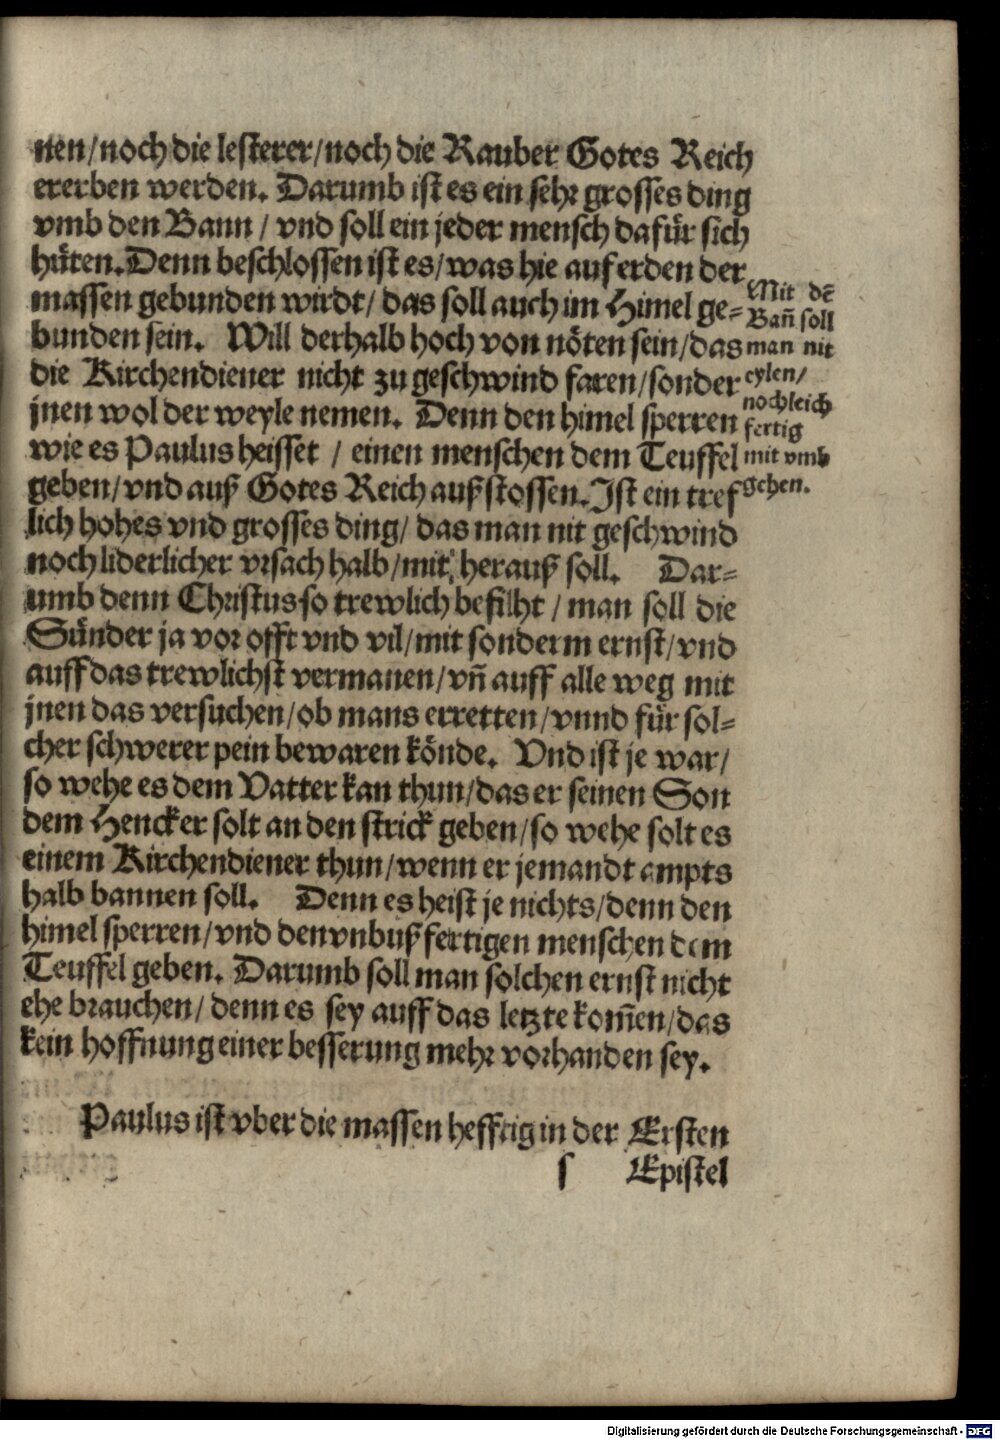 nen/noch die lesterer/noch die Rauber Gotes Reich
ererben werden. Darumb ist es ein sehr grosses ding
vmb den Bann / vnd soll ein jeder mensch dafür sich
hüten. Denn beschlossen ist es/was hie auf erden der
massen gebunden wirdt/ das soll auch im Himel ge=
bunden sein. Will derhalb hoch von nöten sein/das
die Kirchendiener nicht zu geschwind faren/sonder
jnen wol der weyle nemen. Denn den himel sperren
wie es Paulus heisset / einen menschen dem Teuffel
geben/vnd auß Gotes Reich außstossen. Ist ein tref
lich hohes vnd grosses ding/ das man nit geschwind
noch liderlicher vrsach halb/mit herauß soll. Dar=
umb denn Christus so trewlich befilht / man soll die
Sünder ja vor offt vnd vil/mit sonderm ernst/vnd
auff das trewlichst vermanen/vn̄ auff alle weg mit
jnen das versuchen/ob mans erretten/vnnd für sol=
cher schwerer pein bewaren könde. Vnd ist je war/
so wehe es dem Vatter kan thun/das er seinen Son
dem Hencker solt an den strick geben/so wehe solt es
einem Kirchendiener thun/wenn er jemandt ampts
halb bannen soll. Denn es heist je nichts/denn den
himel sperren/vnd den vnbußfertigen menschen dem
Teuffel geben. Darumb soll man solchen ernst nicht
ehe brauchen/ denn es sey auff das letzte kom̄en/das
kein hoffnung einer besserung mehr vorhanden sey.
Mit dē
Bañ soll
man nit
eylen/
noch leich
fertig
mit vmb
gehen.
Paulus ist vber die massen hefftig in der Ersten
s Epistel
Digitalisierung gefördert durch die Deutsche Forschungsgemeinschaft - DFG